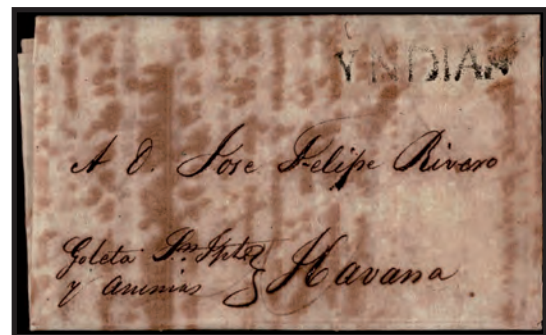 YNDIAS
A D. Jose Felipe Rivero
Goleta
y animas
Havana